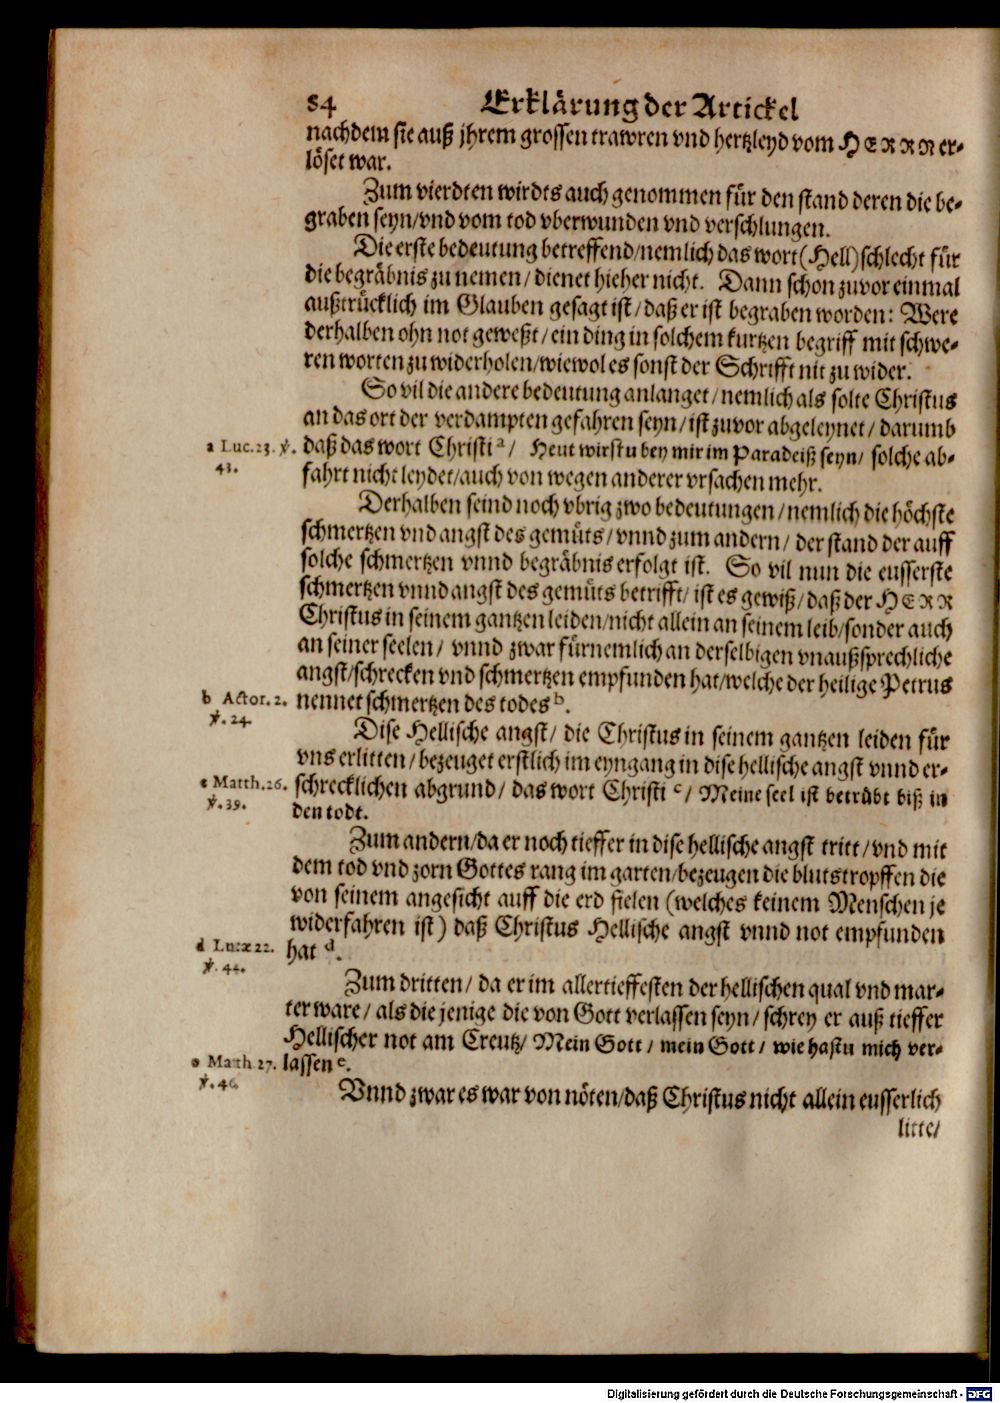 84 Erklärung der Artickel
nachdem sie auß jhrem grossen trawren vnd hertzleyd vom HERRN er-
löset war.
Zum vierdten wirdts auch genommen für den stand deren die be-
graben seyn/vnd vom tod vberwunden vnd verschlungen.
Die erste bedeutung betreffend/nemlich das wort (Hell) schlecht für
die begräbnis zu nemen/dienet hieher nicht. Dann schon zuvor einmal
außtrücklich im Glauben gesagt ist/daß er ist begraben worden: Were
derhalben ohn not geweßt/ein ding in solchem kurtzen begriff mit schwe-
ren worten zu widerholen/wiewol es sonst der Schrifft nit zu wider.
So vil die andere bedeutung anlanget/nemlich als solte Christus
an das ort der verdampten gefahren seyn/ist zuvor abgeleynet/darumb
a Luc. 23. ℣. daß das wort Christi a/ Heut wirstu bey mir im Paradeiß seyn/ solche ab-
43. fahrt nicht leydet/auch von wegen anderer vrsachen mehr.
Derhalben seind noch vbrig zwo bedeutungen/nemlich die höchste
schmertzen vnd angst des gemüts/vnnd zum andern/ der stand der auff
solche schmertzen vnnd begräbnis erfolgt ist. So vil nun die eusserste
schmertzen vnnd angst des gemüts betrifft/ist es gewiß/daß der HERR
Christus in seinem gantzen leiden/nicht allein an seinem leib/sonder auch
an seiner seelen/ vnnd zwar fürnemlich an derselbigen vnaußsprechliche
angst/schrecken vnd schmertzen empfunden hat/welche der heilige Petrus
b Actor. 2. nennet schmertzen des todes b.
℣. 24. Dise Hellische angst/ die Christus in seinem gantzen leiden für
vns erlitten/bezeuget erstlich im eyngang in dise hellische angst vnnd er-
c Matth. 26. schrecklichen abgrund/das wort Christi c/ Meine seel ist betrübt biß in
℣. 39. den todt.
Zum andern/da er noch tieffer in dise hellische angst tritt/vnd mit
dem tod vnd zorn Gottes rang im garten/bezeugen die blutstropffen die
von seinem angesicht auff die erd fielen (welches keinem Menschen je
widerfahren ist) daß Christus Hellische angst vnnd not empfunden
d Lucæ 22. hat d.
℣. 44. Zum dritten/ da er im allertieffesten der hellischen qual vnd mar-
ter ware/ als die jenige die von Gott verlassen seyn/schrey er auß tieffer
Hellischer not am Creutz/ Mein Gott/ mein Gott/ wie hastu mich ver-
e Matth. 27. lassen e.
℣. 46. Vnnd zwar es war von nöten/daß Christus nicht allein eusserlich
litte/
Digitalisierung gefördert durch die Deutsche Forschungsgemeinschaft - DFG